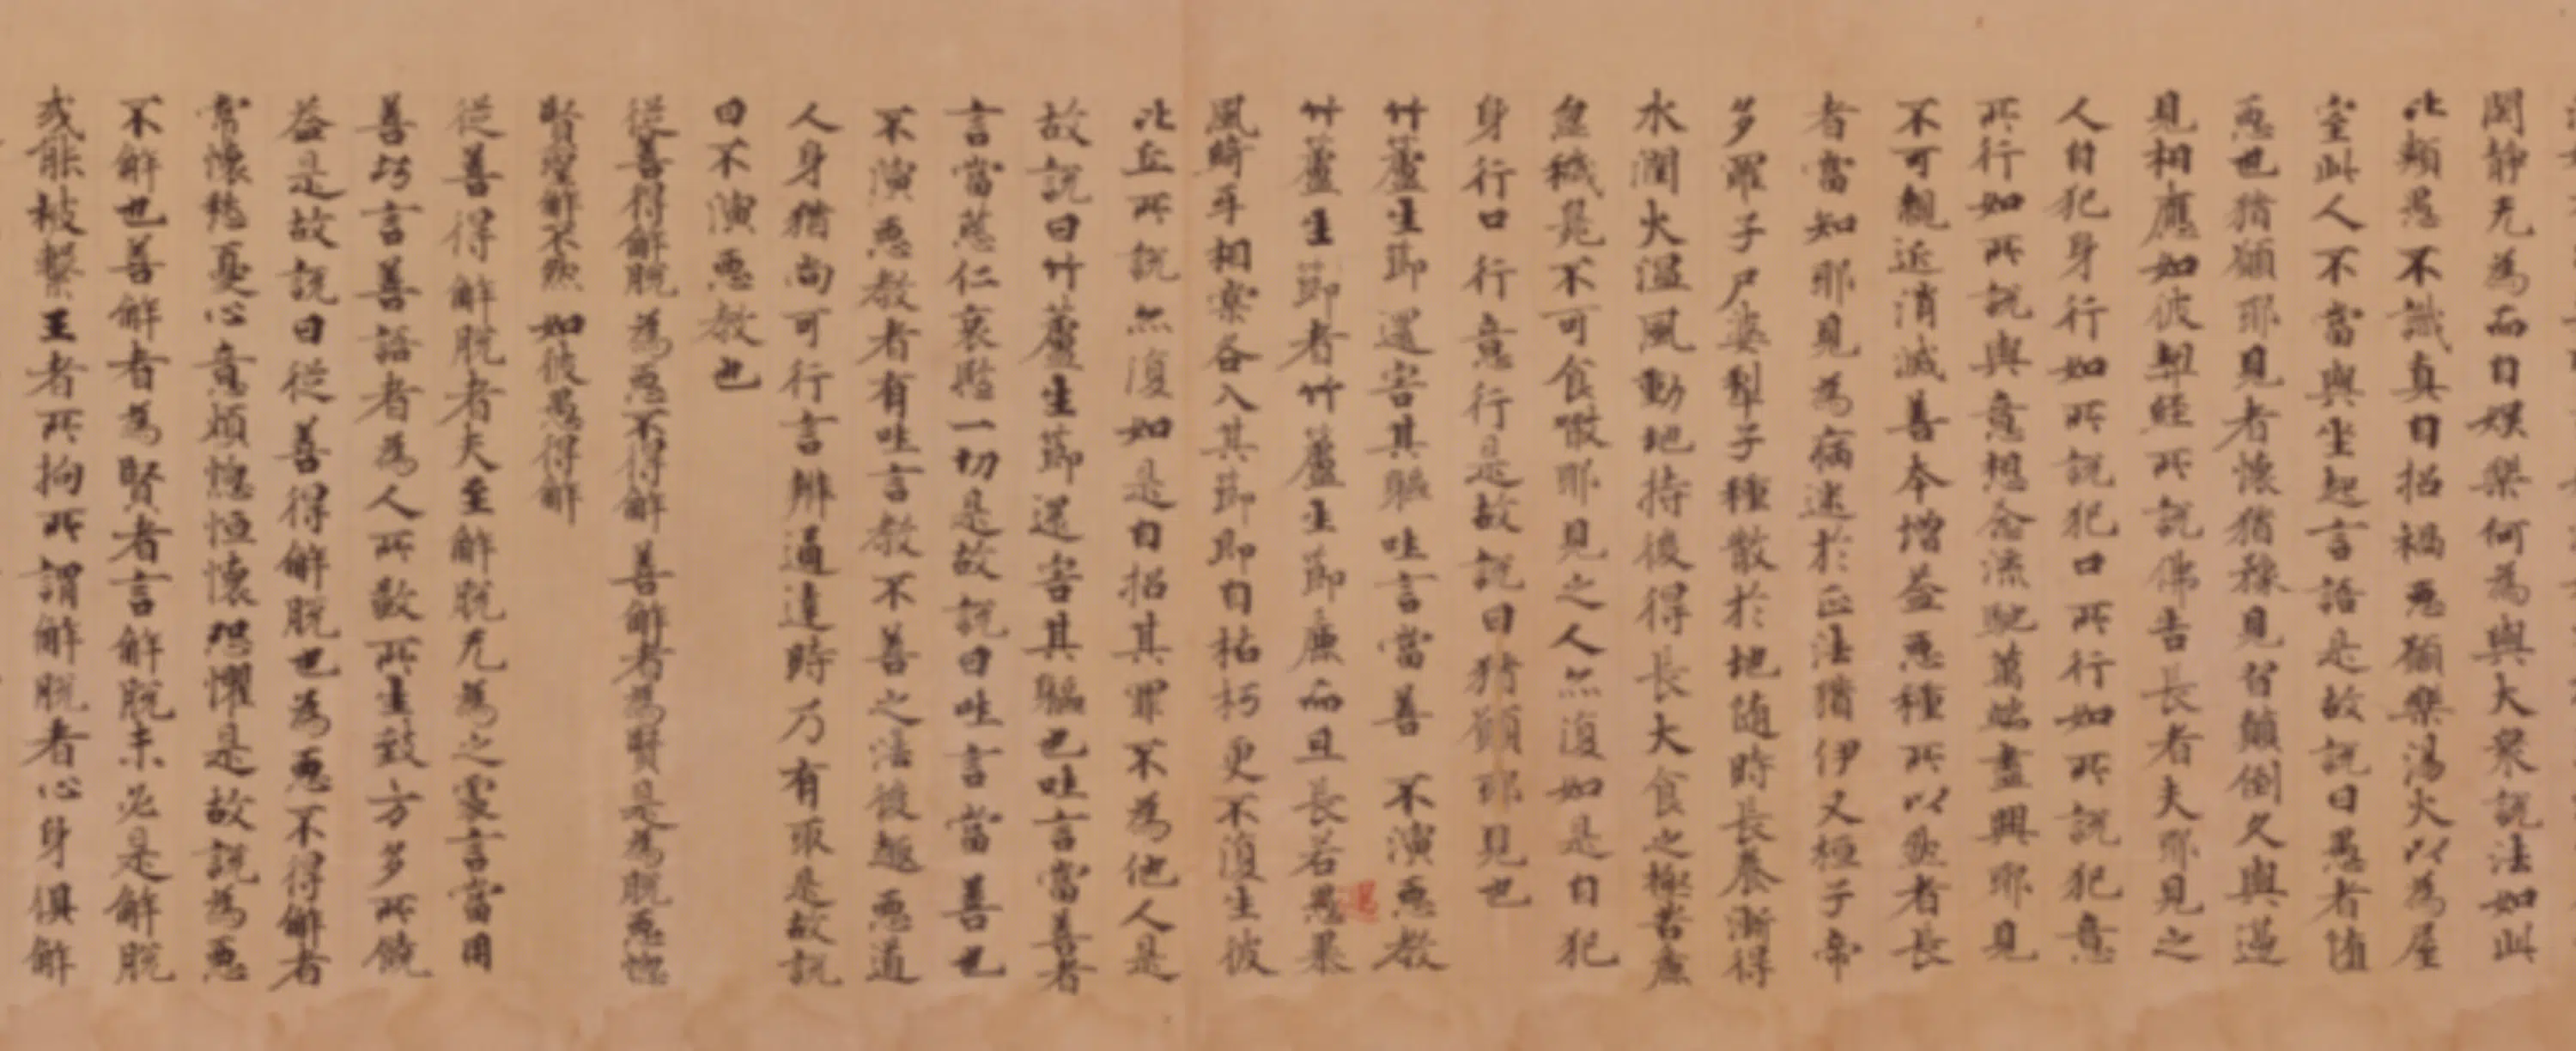 閑静无為而自娯樂何為與大衆說法如此
比類愚不識真自招禍惡願樂湯火以為屋
室此人不當與坐起言語是故說曰愚者墮
惡也猗願耶見者懷猶豫見皆顛倒久與邁
見相應如彼契經所說佛告長者夫耶見之
人自犯身行如所說犯口所行如所說犯意
所行如所說與意想念流馳萬端盡興耶見
不可親近消滅善本增益惡種所以然者長
者當知耶見為病迷於正法猶伊叉桓子帝
多羅子尸婆犁子種散於地随時長養漸得
水潤火溫風動地持後得長大食之極苦
盆穢是不可食噉耶見之人亦復如是自犯
身行口行意行是故說曰猗願耶見也
竹蘆生節還害其軀吐言當善不演惡教
竹蘆生節者竹蘆生節而且長若愚暴
風綺斗相榮各入其節即自枯朽更不復生彼
比丘所說亦復如是自招其罪不為他人是
故說曰竹蘆生節還害其軀也吐言當善者
言當慈仁哀愍一切是故說曰吐言當善也
不演惡教者有吐言教不善之法後趣惡道
人身猶尚可行言辦通達時乃有耳是故說
曰不演惡教也
從善得解脫為惡不得解善解者為賢是為脫惡惱
賢聖解不然如彼愚得解
從善得解脫者夫至解脫无為之處言當用
善巧言善語者為人所歎所生致方多所饒
益是故說曰從善得解脫也為惡不得解者
常懷愁憂心意煩惱恒懷恐懼是故說為惡
不解也善解者為賢者言解脫未必是解脫
或能被繫王者所拘所謂解脫者心身俱解